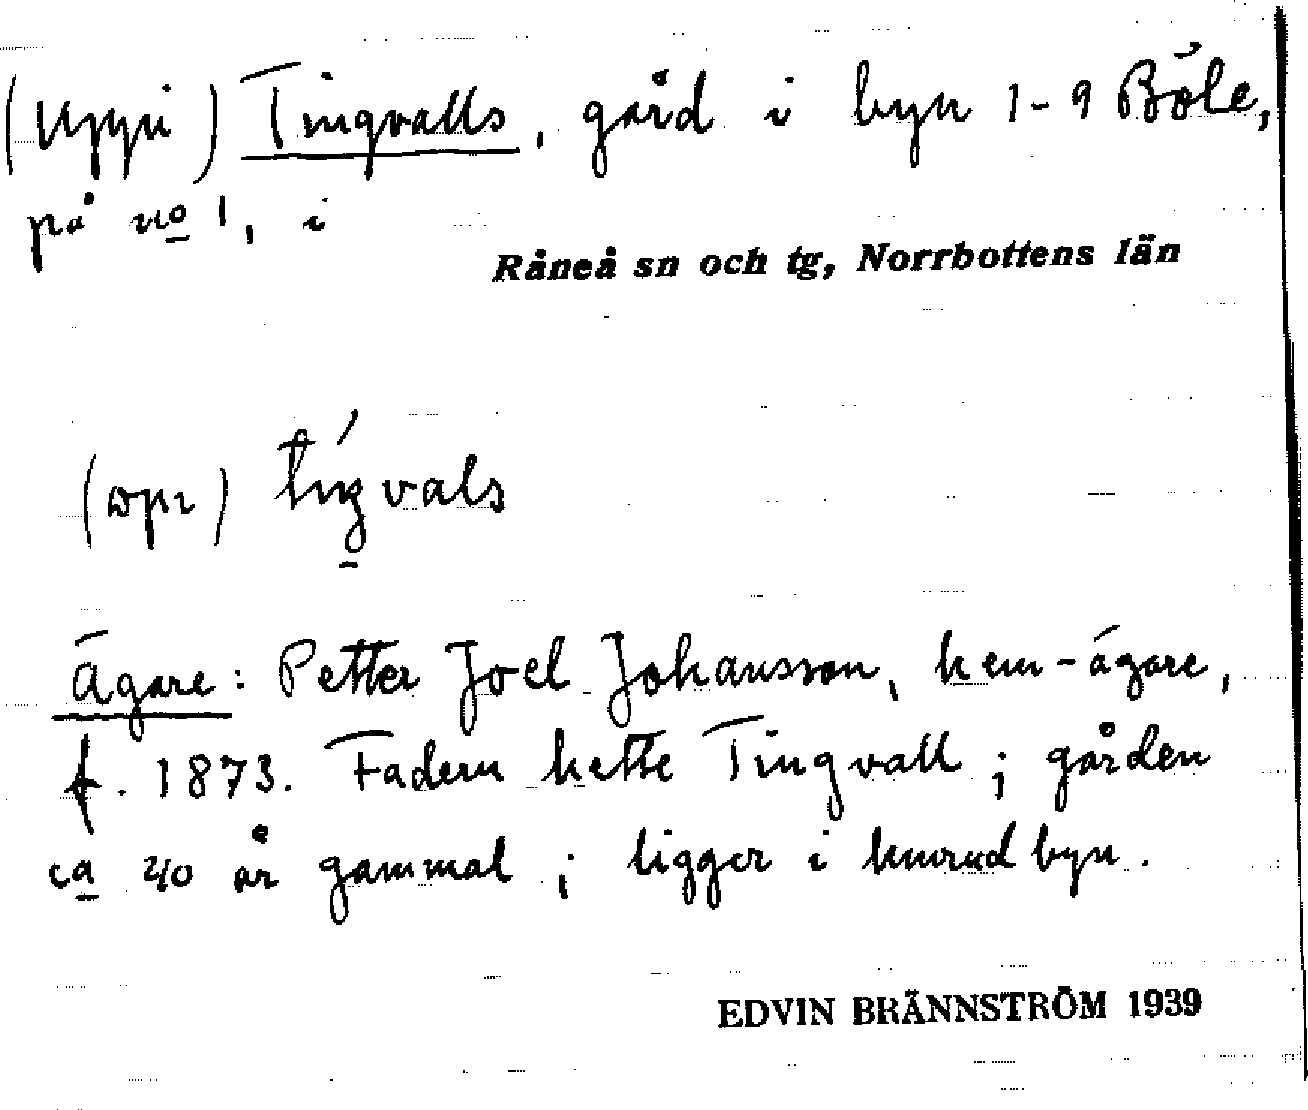 (Uppi) Tingvalls, gård i byn 1-9 Böle,
på no 1, i
Råneå sn och tg, Norrbottens län
(opı) tíŋvals
Ägare: Petter Joel Johansson, hem-ägare,
f. 1873. Fadern hette Tingvall; gården
ca 40 år gammal; ligger i huvudbyn.
EDVIN BRÄNNSTRÖM 1939